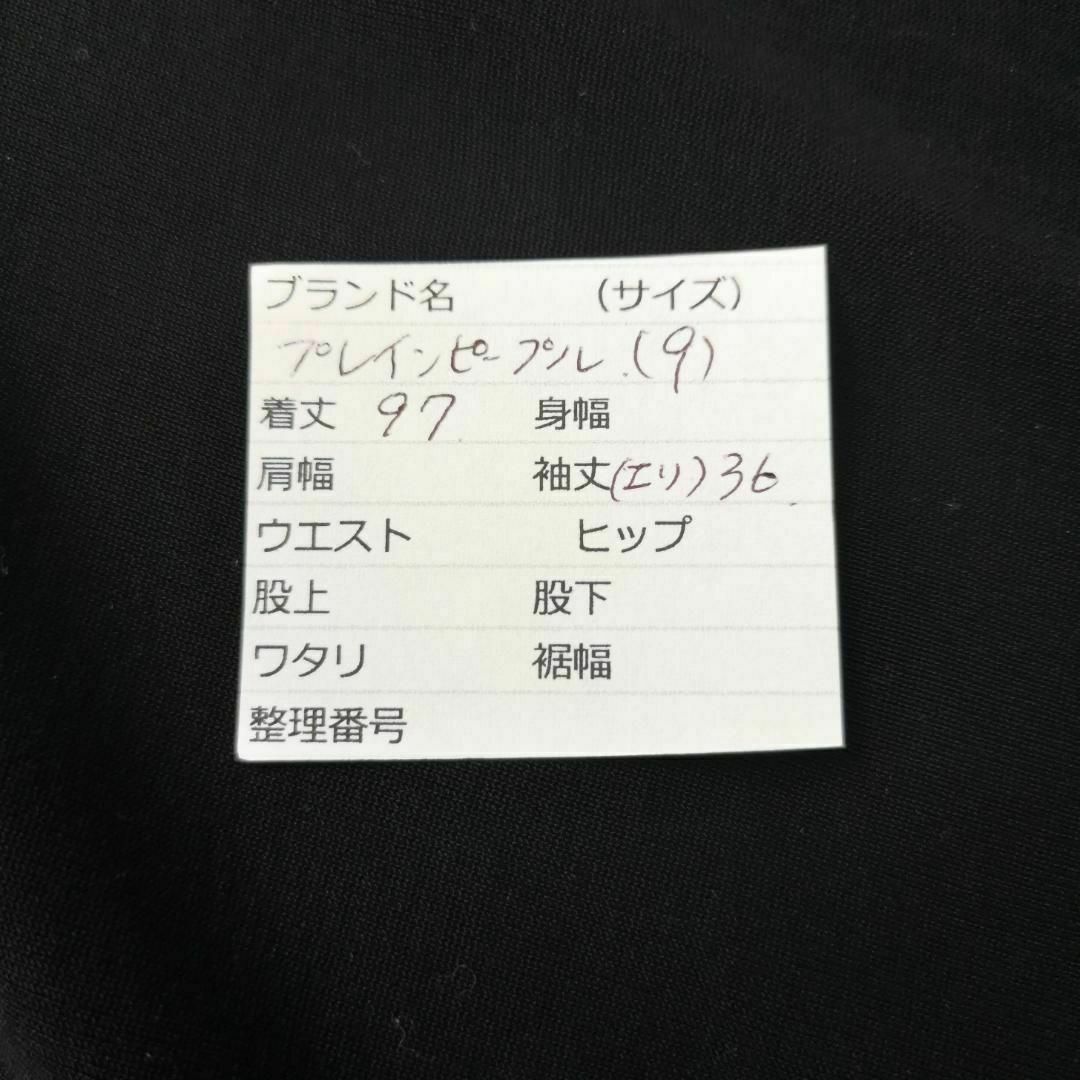 ブランド名 （サイズ）
プレインピープル.(9)
着丈 97 身幅
肩幅 袖丈(エリ)36
ウエスト ヒップ
股上 股下
ワタリ 裾幅
整理番号